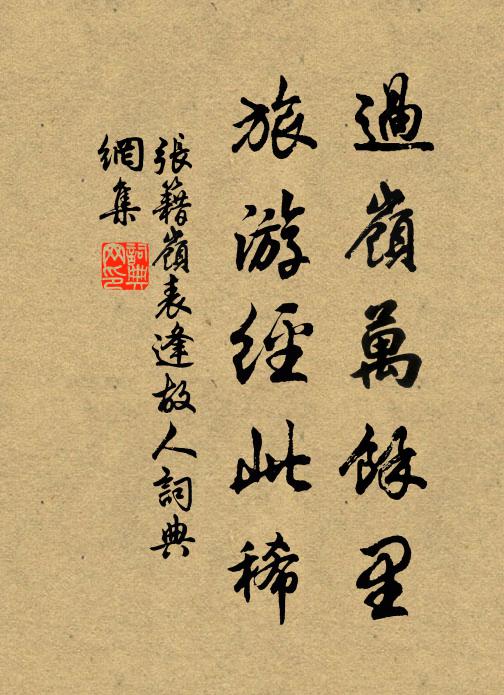 過嶺萬餘里
旅游經此稀
張籍嶺表逢故人詞典
網集
詞典
网印